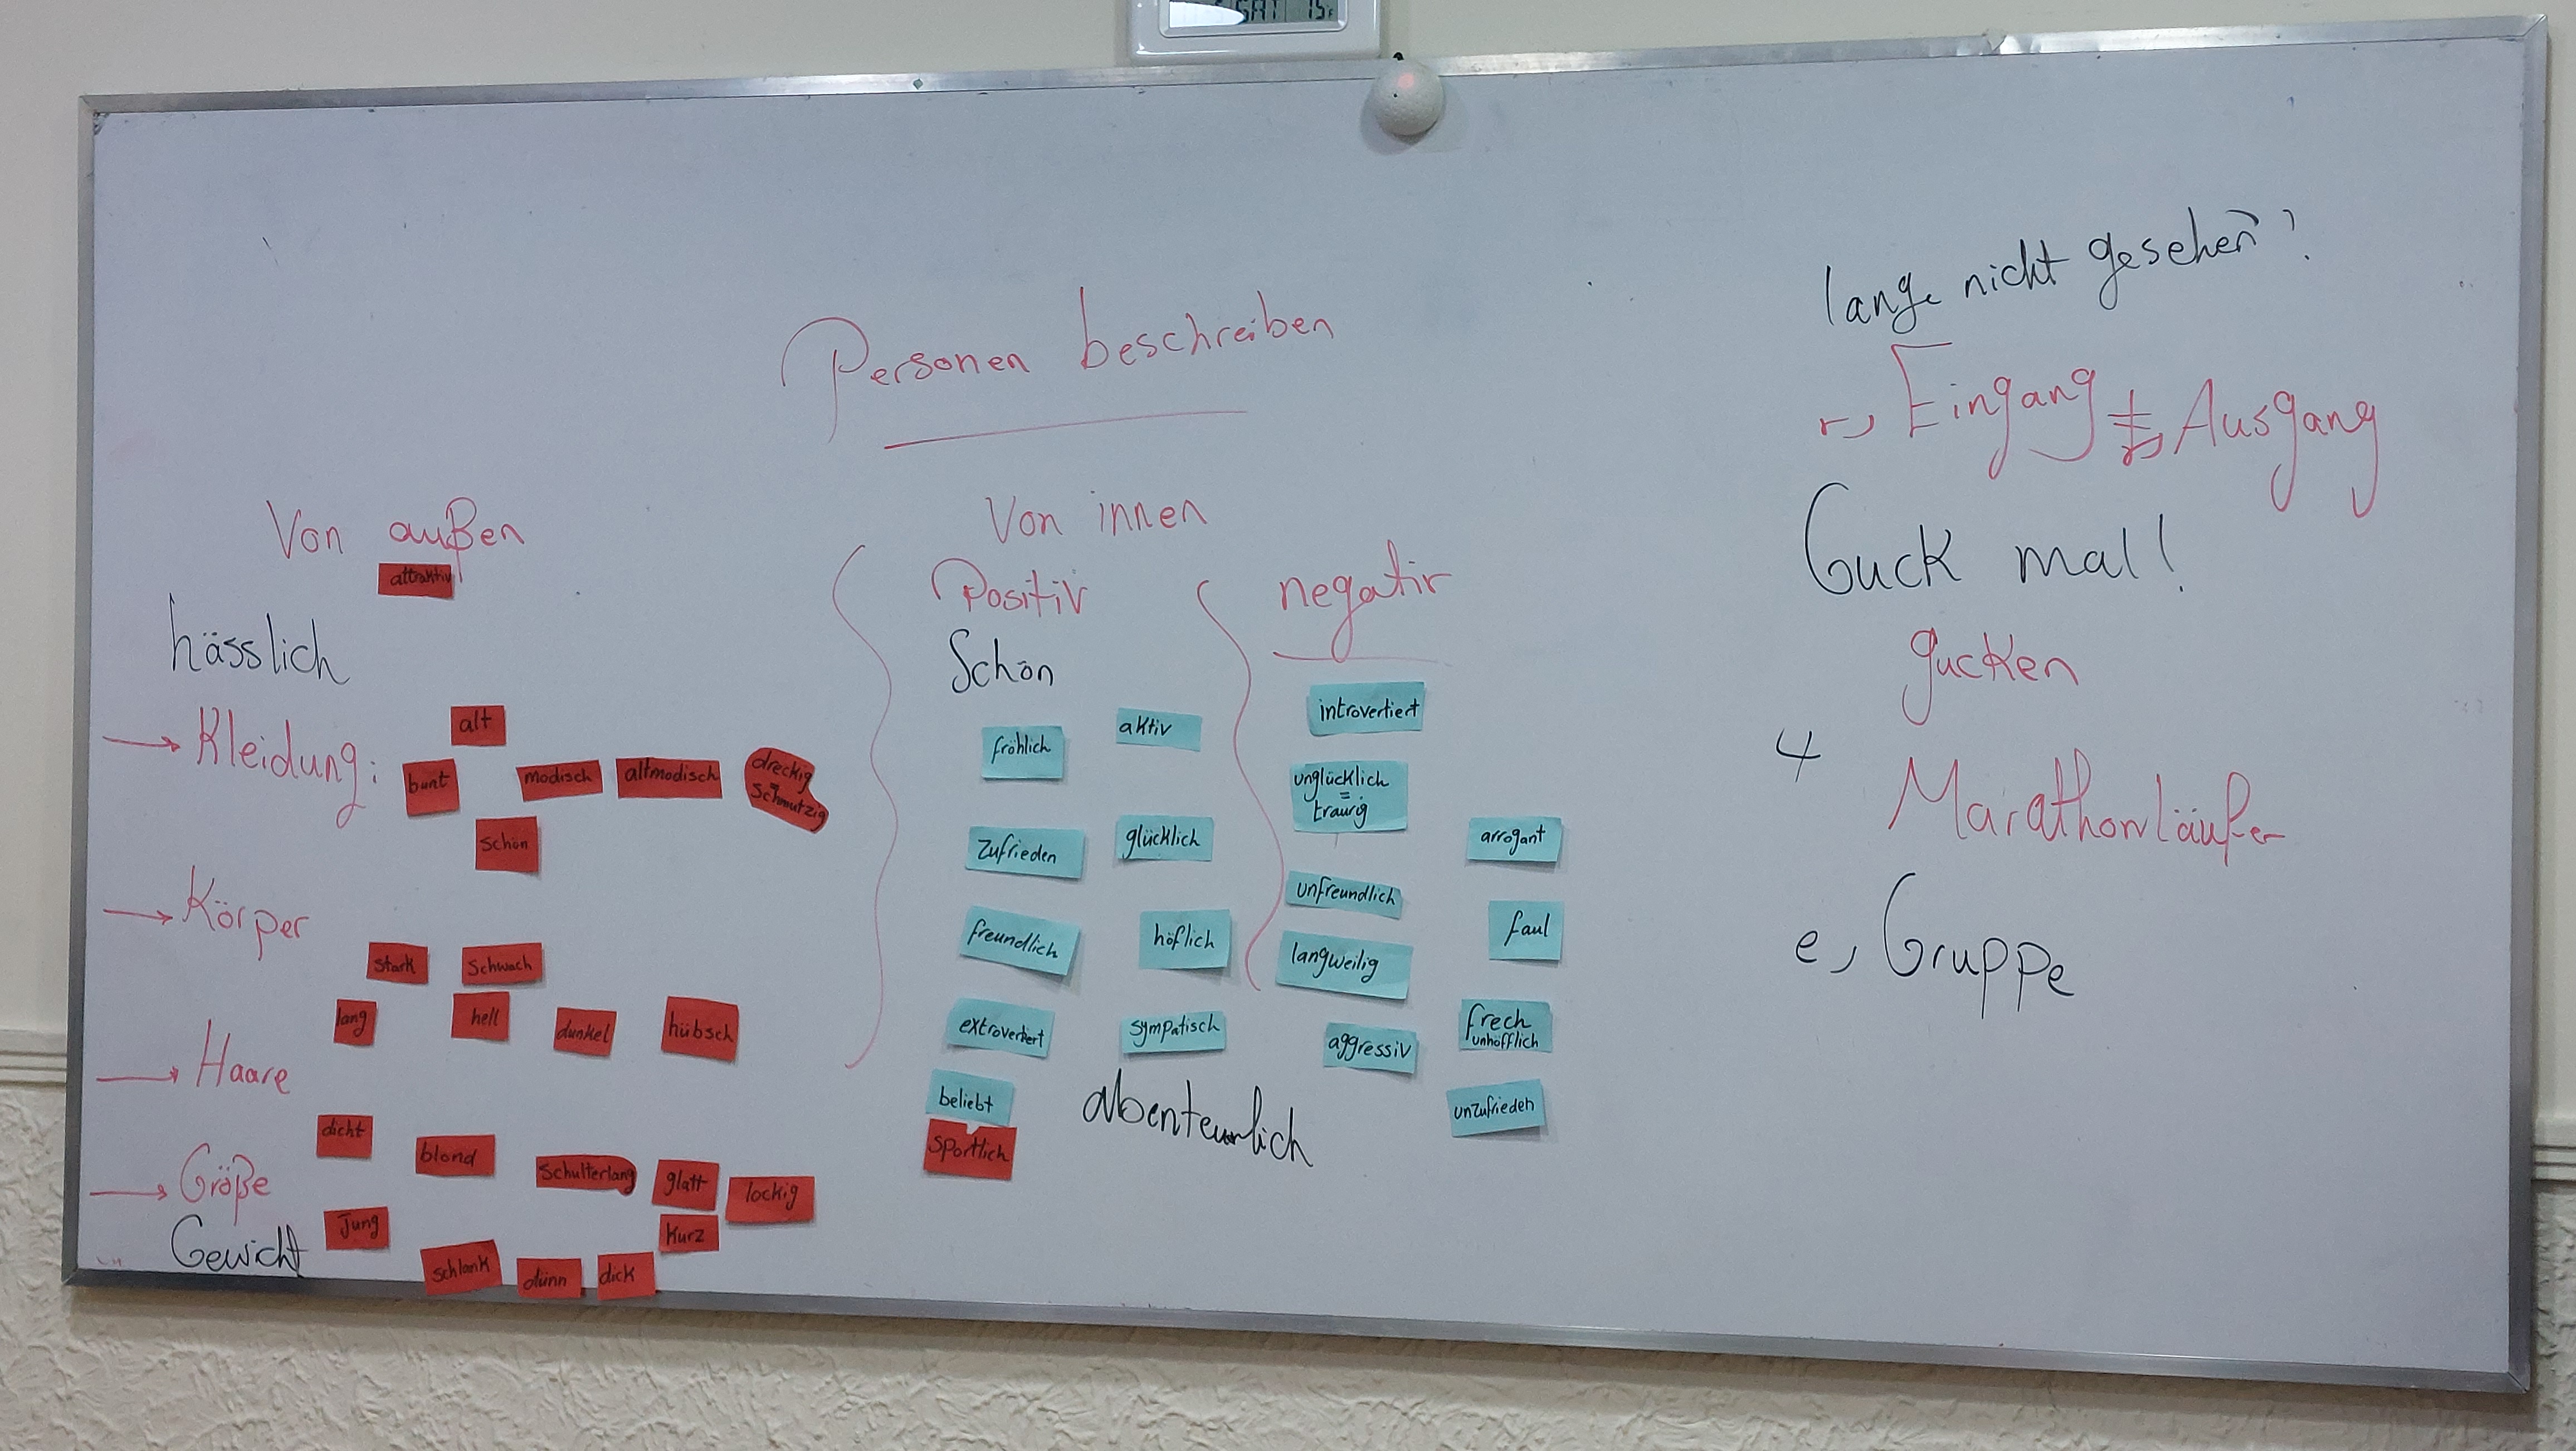 SAT 15
Personen beschreiben
Von außen
attraktiv
hässlich
→ Kleidung:
alt
bunt
modisch
altmodisch
dreckig
=
schmutzig
schön
→ Körper
stark
schwach
lang
hell
dunkel
hübsch
→ Haare
dicht
blond
schulterlang
glatt
lockig
kurz
→ Größe
Jung
Gewicht
schlank
dünn
dick
Von innen
Positiv
Schön
fröhlich
aktiv
zufrieden
glücklich
freundlich
höflich
extrovertiert
sympatisch
beliebt
sportlich
abenteurlich
negativ
introvertiert
unglücklich
=
traurig
arrogant
unfreundlich
faul
langweilig
frech
unhöfflich
aggressiv
unzufrieden
lange nicht gesehen
r, Eingang ≠ Ausgang
Guck mal!
gucken
4
Marathonläufer
e, Gruppe